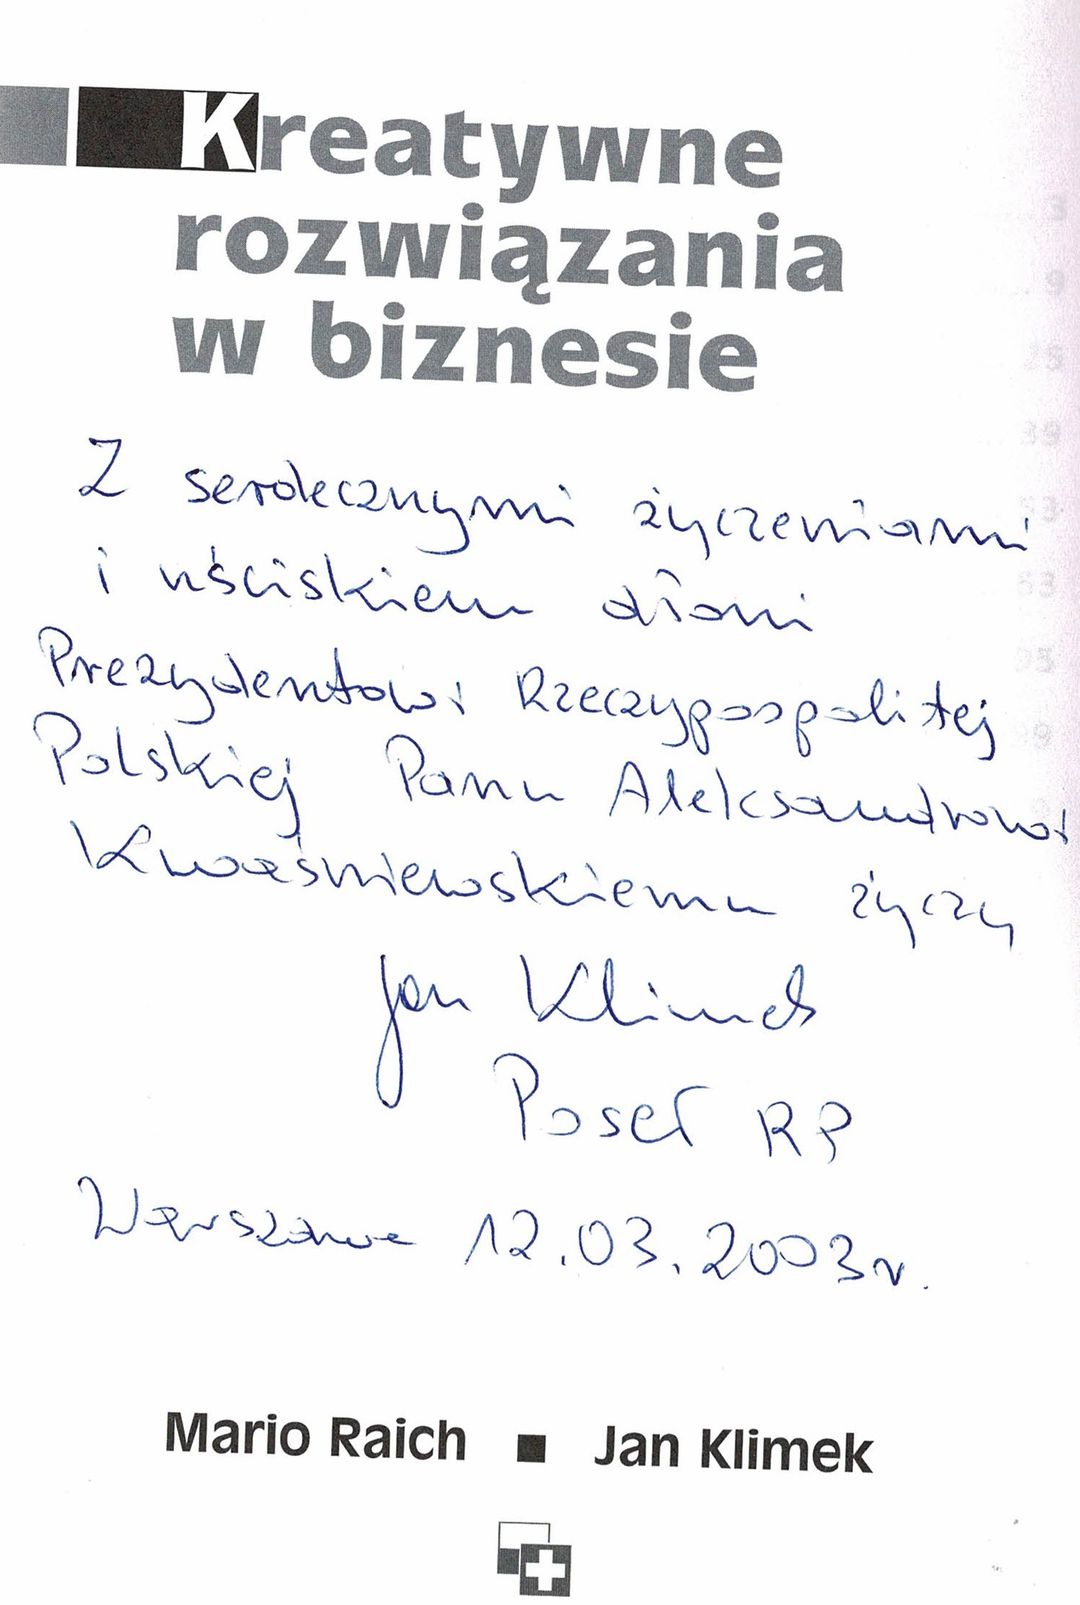 Kreatywne
rozwiązania
w biznesie
Z serdecznymi życzeniami
i uściskiem dłoni
Prezydentowi Rzeczypospolitej
Polskiej Panu Aleksandrowi
Kwaśniewskiemu życzy
Jan Klimek
Poseł RP
Warszawa 12.03.2003r.
Mario Raich ■ Jan Klimek